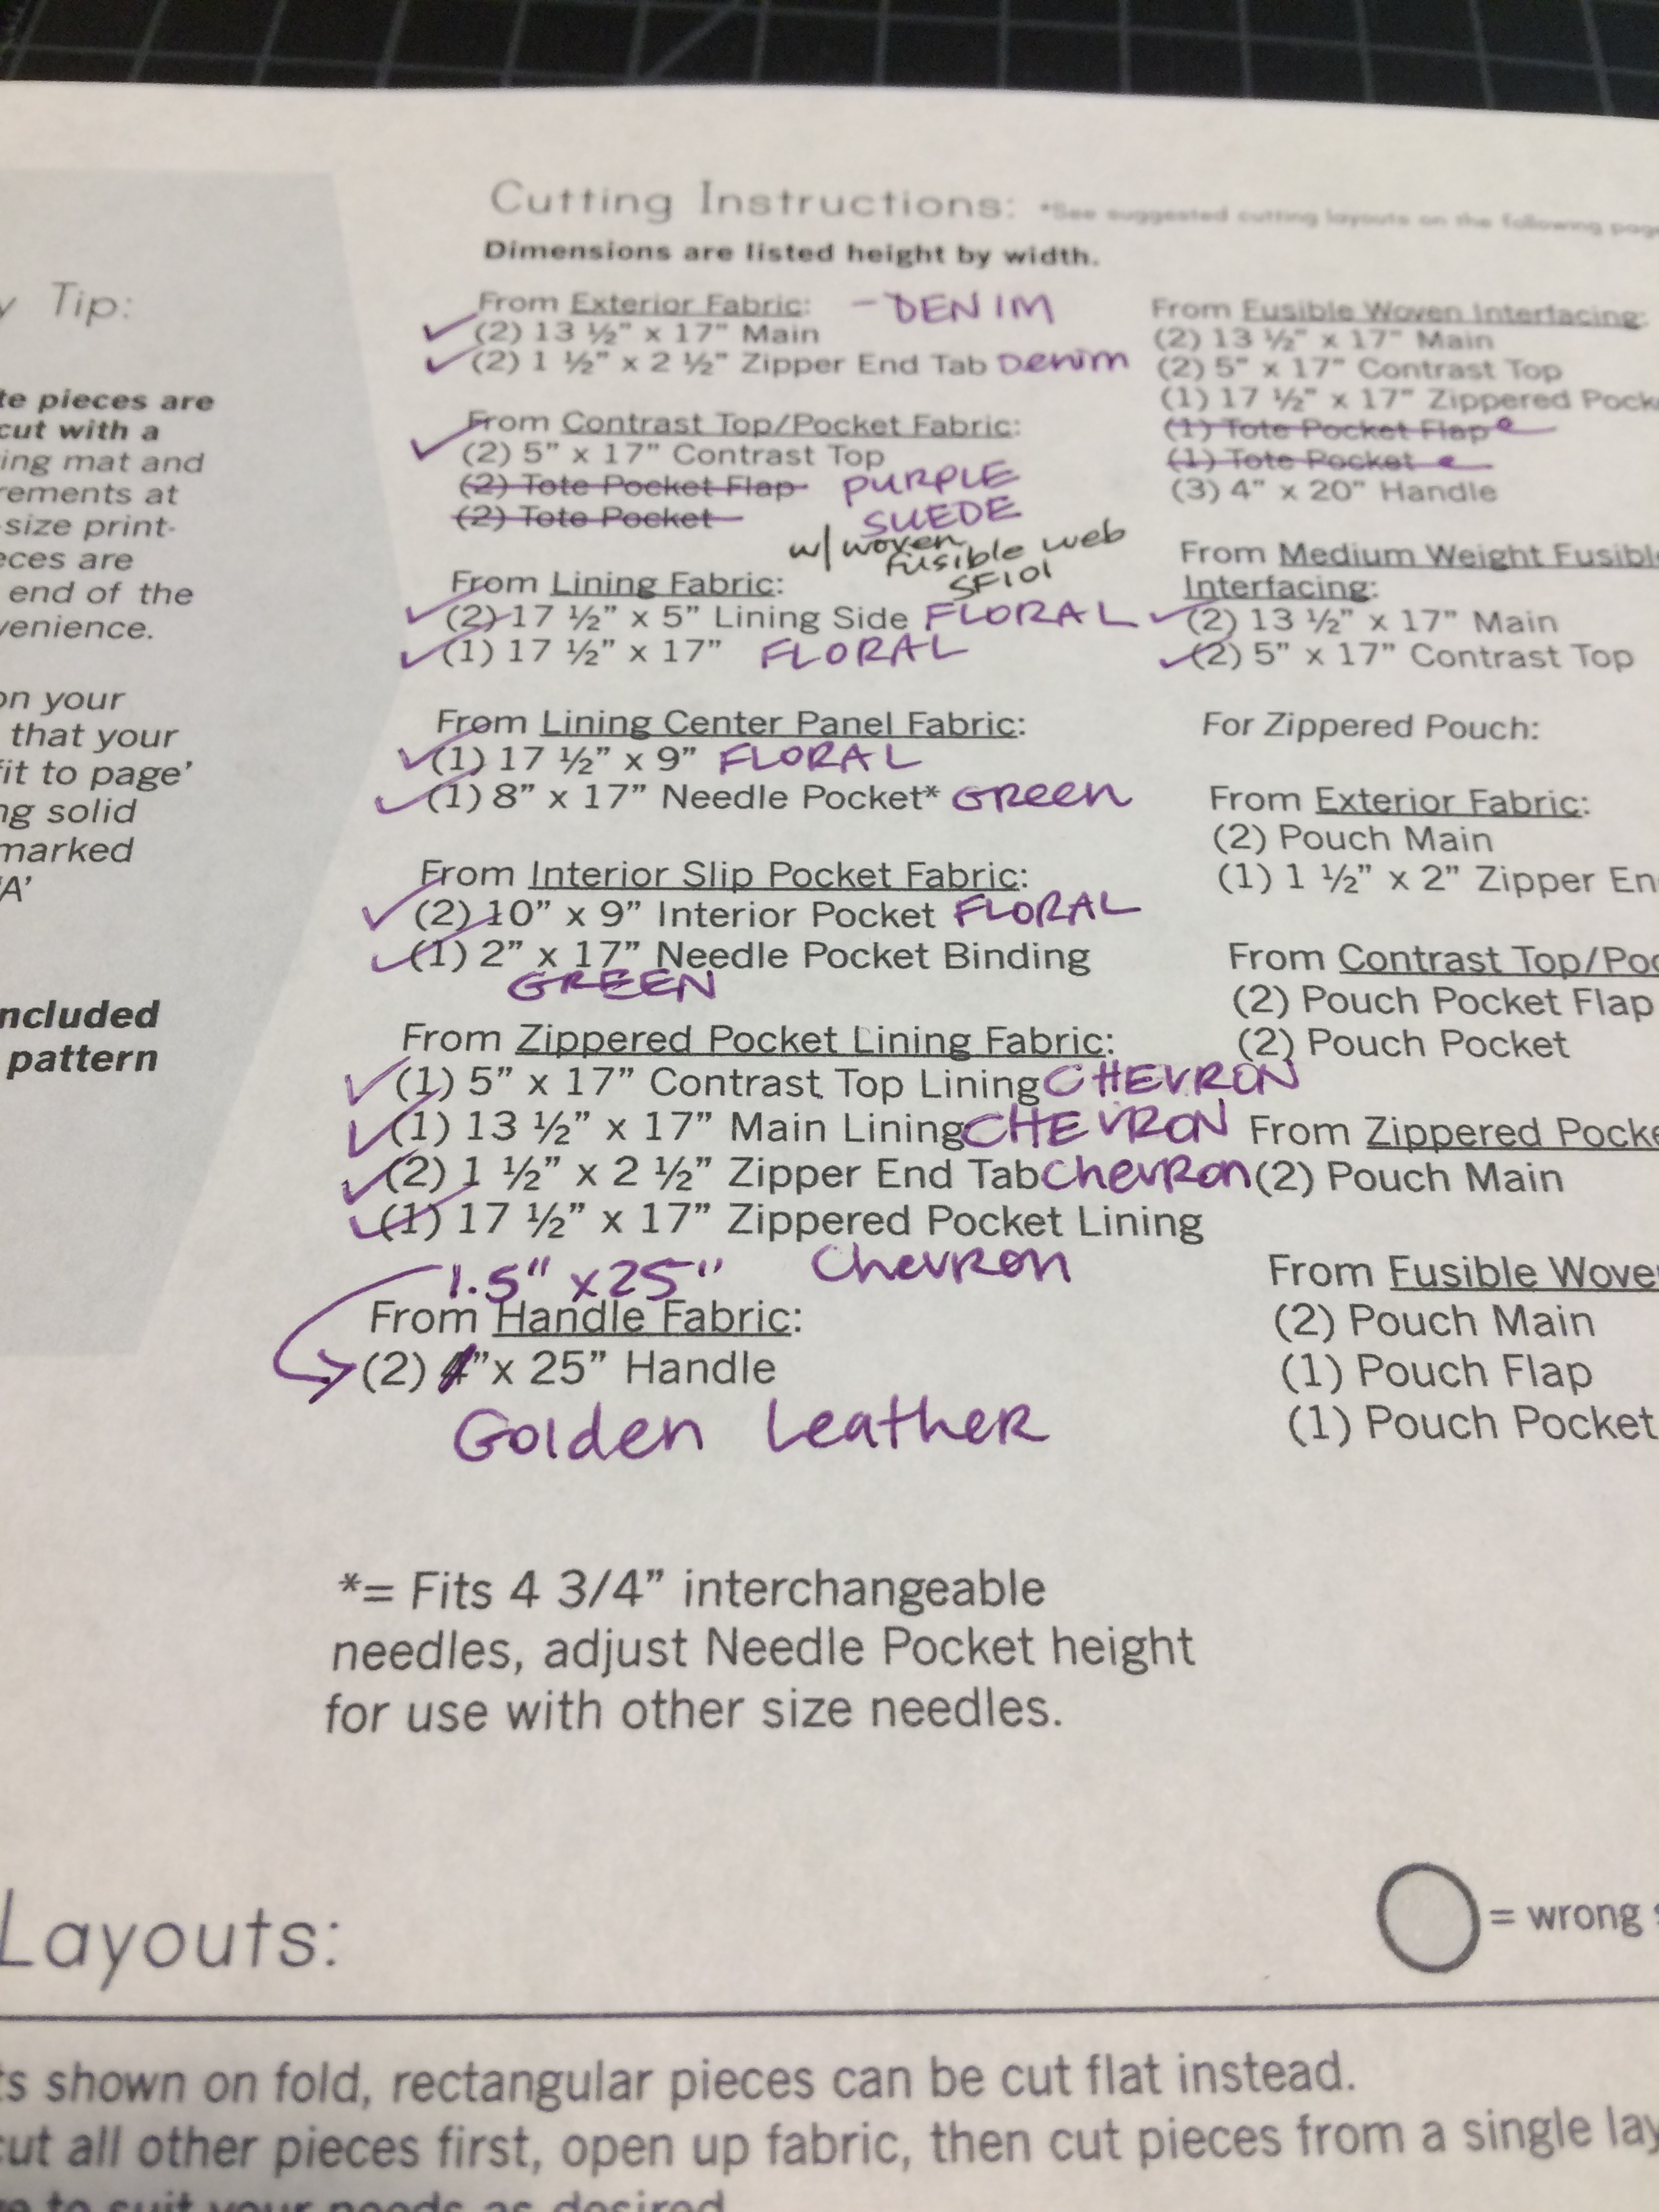 Tip:
te pieces are
cut with a
ing mat and
rements at
-size print-
eces are
end of the
venience.
on your
that your
fit to page'
ng solid
marked
'A'
ncluded
pattern
Cutting Instructions: *See suggested cutting layouts on the following page
Dimensions are listed height by width.
From Exterior Fabric: - DENIM
(2) 13 ½" x 17" Main
(2) 1 ½" x 2 ½" Zipper End Tab Denim
From Contrast Top/Pocket Fabric:
(2) 5" x 17" Contrast Top
(2) Tote Pocket Flap PURPLE
(2) Tote Pocket SUEDE
w/ woven
fusible web
SF101
From Lining Fabric:
(2) 17 ½" x 5" Lining Side FLORAL
(1) 17 ½" x 17" FLORAL
From Lining Center Panel Fabric:
(1) 17 ½" x 9" FLORAL
(1) 8" x 17" Needle Pocket* GReen
From Interior Slip Pocket Fabric:
(2) 10" x 9" Interior Pocket FLORAL
(1) 2" x 17" Needle Pocket Binding
GREEN
From Zippered Pocket Lining Fabric:
(1) 5" x 17" Contrast Top Lining CHEVRON
(1) 13 ½" x 17" Main Lining CHEVRON
(2) 1 ½" x 2 ½" Zipper End Tab ChevRon
(1) 17 ½" x 17" Zippered Pocket Lining
ChevRon
1.5" x 25"
From Handle Fabric:
(2) 4" x 25" Handle
Golden LeatheR
*= Fits 4 3/4" interchangeable
needles, adjust Needle Pocket height
for use with other size needles.
From Fusible Woven Interfacing:
(2) 13 ½" x 17" Main
(2) 5" x 17" Contrast Top
(1) 17 ½" x 17" Zippered Pock
(1) Tote Pocket Flap
(1) Tote Pocket
(3) 4" x 20" Handle
From Medium Weight Fusibl
Interfacing:
(2) 13 ½" x 17" Main
(2) 5" x 17" Contrast Top
For Zippered Pouch:
From Exterior Fabric:
(2) Pouch Main
(1) 1 ½" x 2" Zipper En
From Contrast Top/Poc
(2) Pouch Pocket Flap
(2) Pouch Pocket
From Zippered Pocke
(2) Pouch Main
From Fusible Wove
(2) Pouch Main
(1) Pouch Flap
(1) Pouch Pocket
Layouts:
= wrong
ts shown on fold, rectangular pieces can be cut flat instead.
cut all other pieces first, open up fabric, then cut pieces from a single lay
to suit your needs as desired